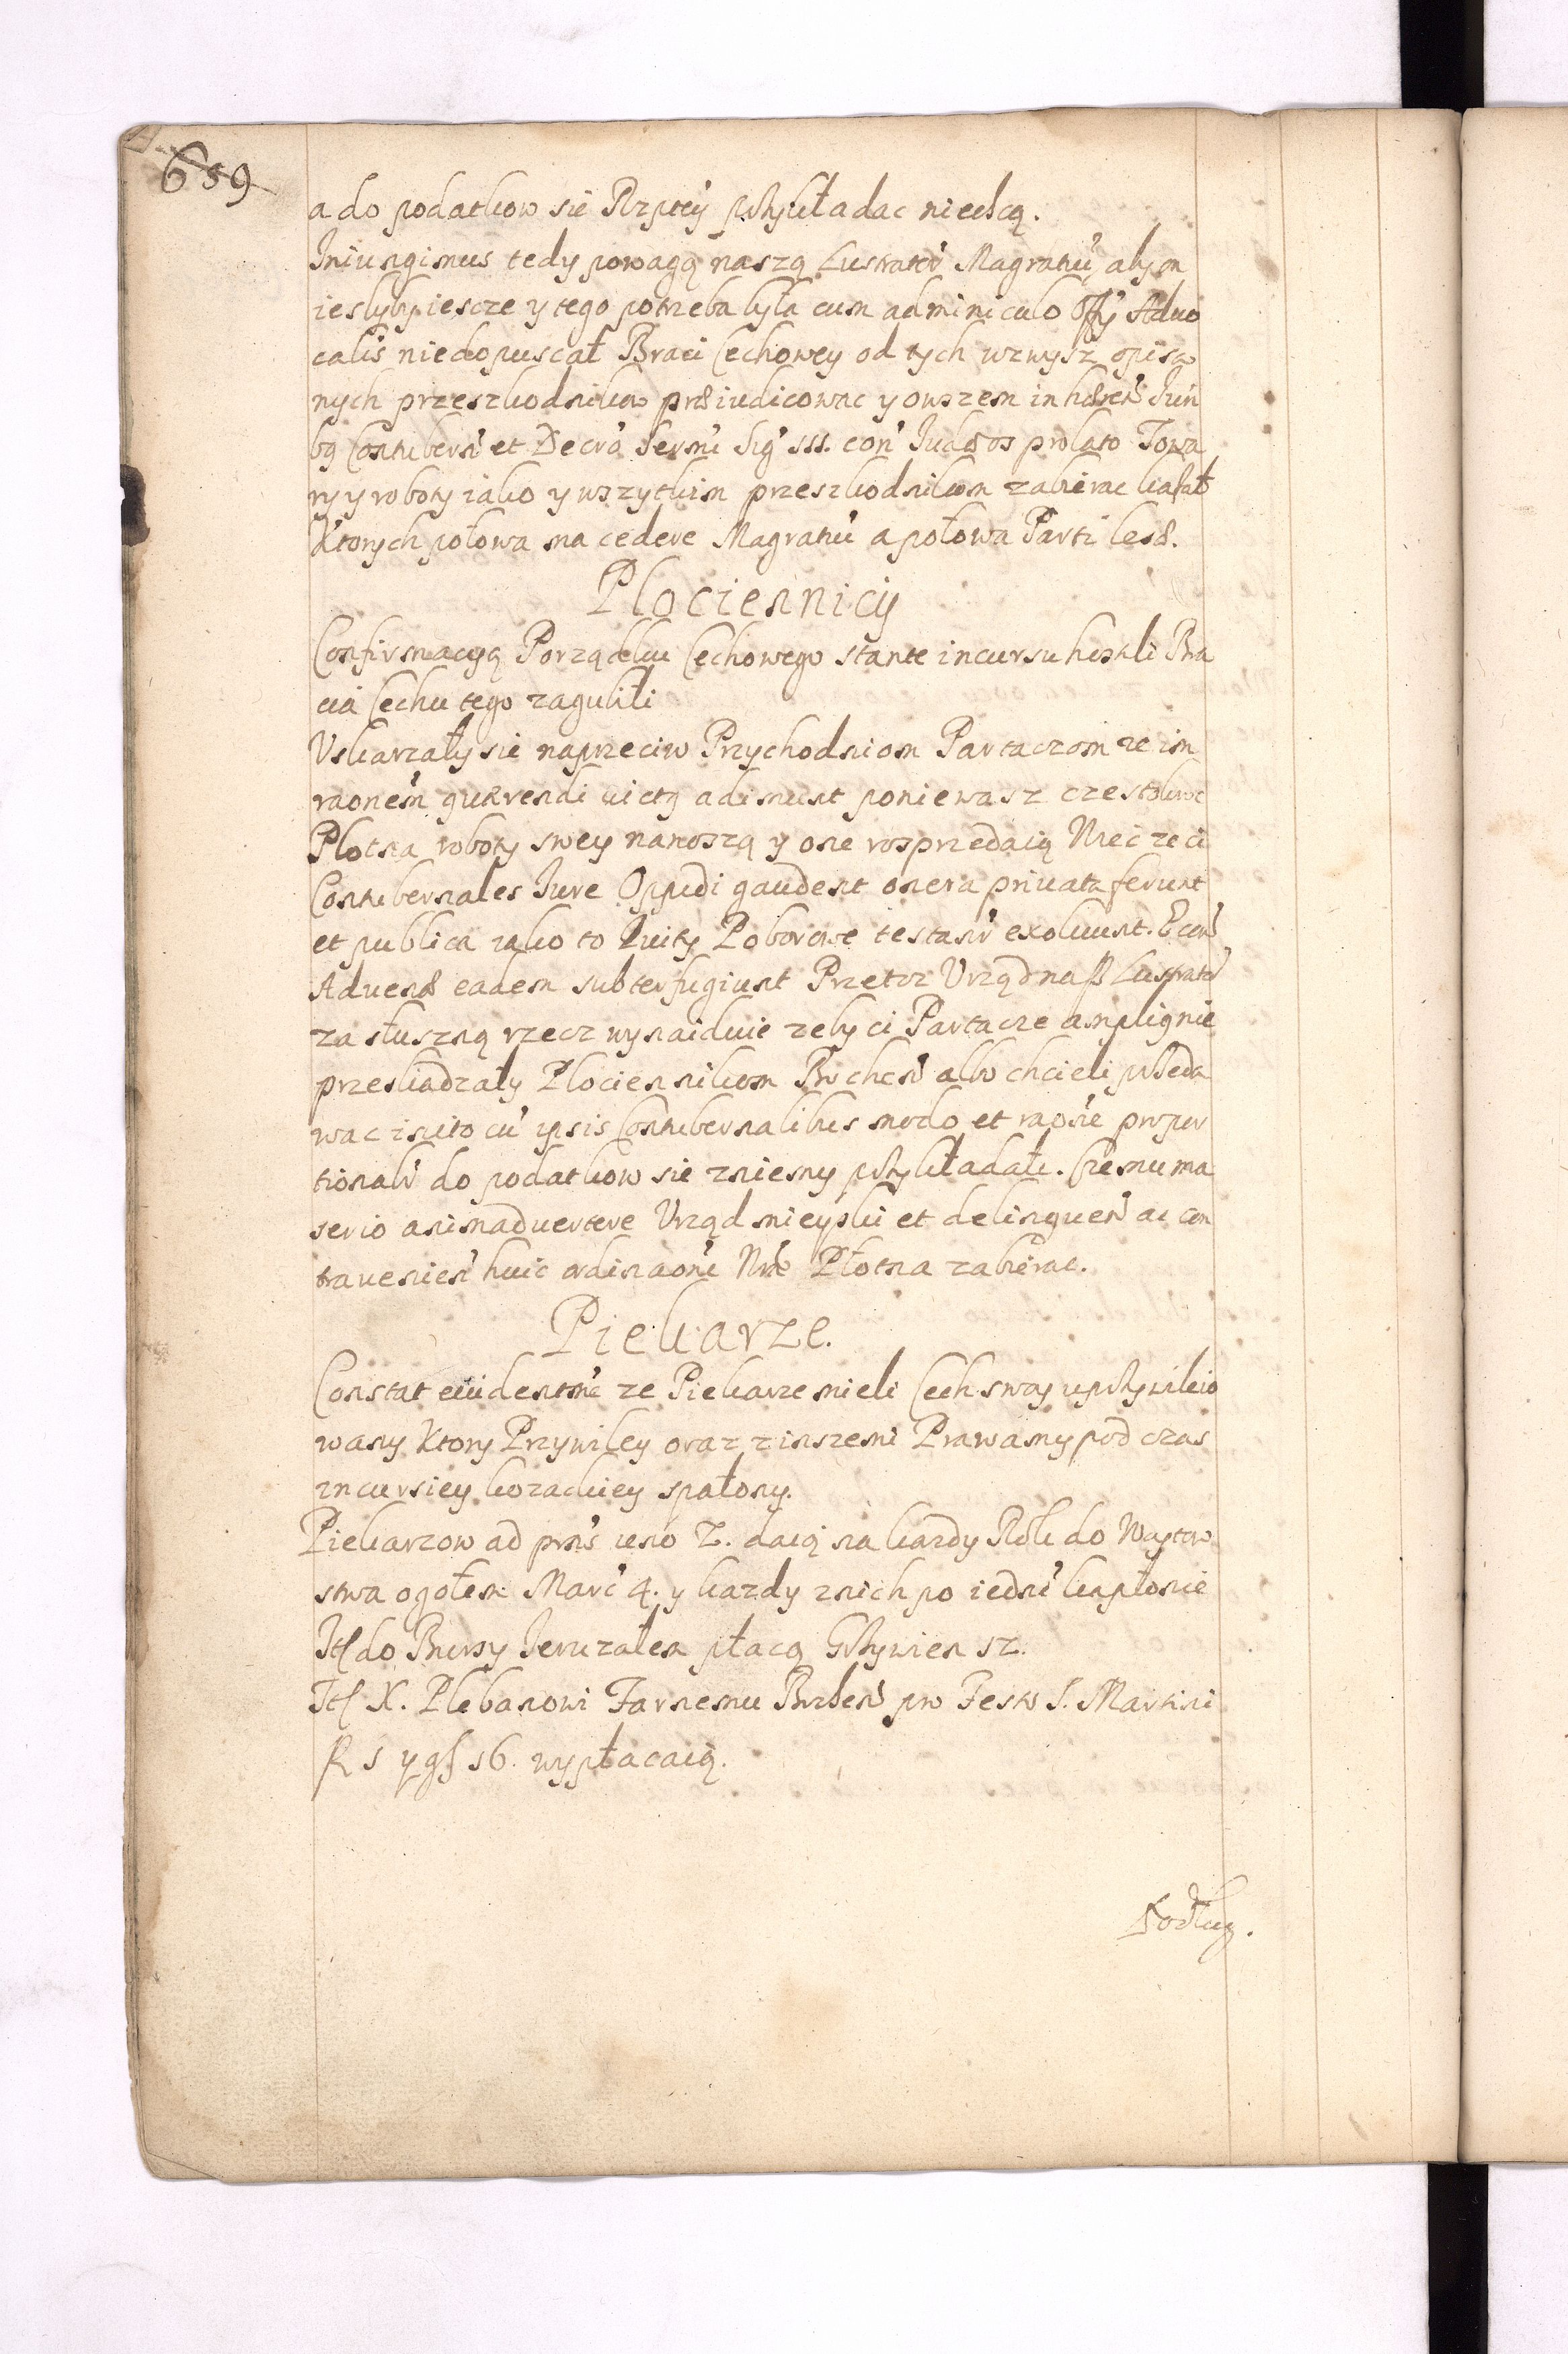 659
a do podatkow sie Rzptey przykładac niechcą.
Iniungimus tedy powagą naszą Lustrator̃ Magratui abym
iesliby iescze y tego potrzeba była cum adminiculo Offy Aduo
calis niedopuscał Braci Cechowey od tych wzwysz opisa
nych przeszkodnikow præiudicowac y owszem inhæreñ Iuri
bq Contuberñ et Decro Sermi Sig III. coñ Iudæos prolato Towa
ry y roboty iako y wszytkim przeszkodnikom zabierac kazał
Ktorych połowa ma cedere Magratui a połowa Parti lesæ.
Plociennicy
Confirmacyą Porządku Cechowego stante incursu hostili Bra
cia Cechu tego zagubili
Uskarzały sie naprzeciw Przychodniom Partaczom ze im
raonem quærendi uictq adimunt poniewasz czestokroc
Plotna roboty swey nanoszą y one rosprzedaią Nec ze ci
Contubernales Iure Oppidi gaudent onera priuata ferunt
et publica iako to Kwity Poborowe testanr̃ exoluunt. E coñ
Aduenæ eadem subterfugiunt Przetoz Urząd nasz Lustrator̃
za słuszną rzecz wynaiduie zeby ci Partacze amplignie
przeskadzały Płociennikom Bocheñ albo chcieli przeda
wac inito cũ ipsis Contubernalibus modo et raone propor
tionali do podatkow sie zniemy przykładali. Czemu ma
serio animaduertere Urząd mieyski et delinqueñ ac con
traueñieñ huic ordinaoni Nræ Płotna zabierac.
Piekarze.
Constat euidentme ze Piekarze mieli Cech swoy uprzywileio
wany Ktory Przywiley oraz z inszemi Prawamy pod czas
incursiey kozackiey spałony.
Piekarzow ad prns ieno 2. daią na kazdy Rok do Woytow
stwa ogołem Marc 4. y kazdy z nich po iednr̃ kapłonie
Itd do Bursy Ieruzalem płacą Grzywien sz.
Itd X. Plebanowi Farnemu Bochen pro Festo S. Martini
fl 5 y gr 16. wypłacaią.
Podług.